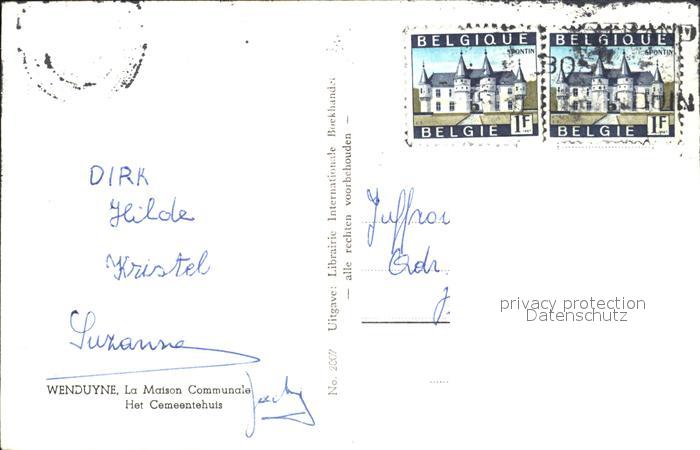 BELGIQUE
SPONTIN
BELGIE 1F
BELGIQUE
SPONTIN
BELGIE 1F
DIRK
Hilde
Kristel
Suzanne
WENDUYNE, La Maison Communale
Het Gemeentehuis
No. 2007 Uitgave: Librairie Internationale Boekhandel
— alle rechten voorbehouden —
Juffrou
privacy protection
Datenschutz